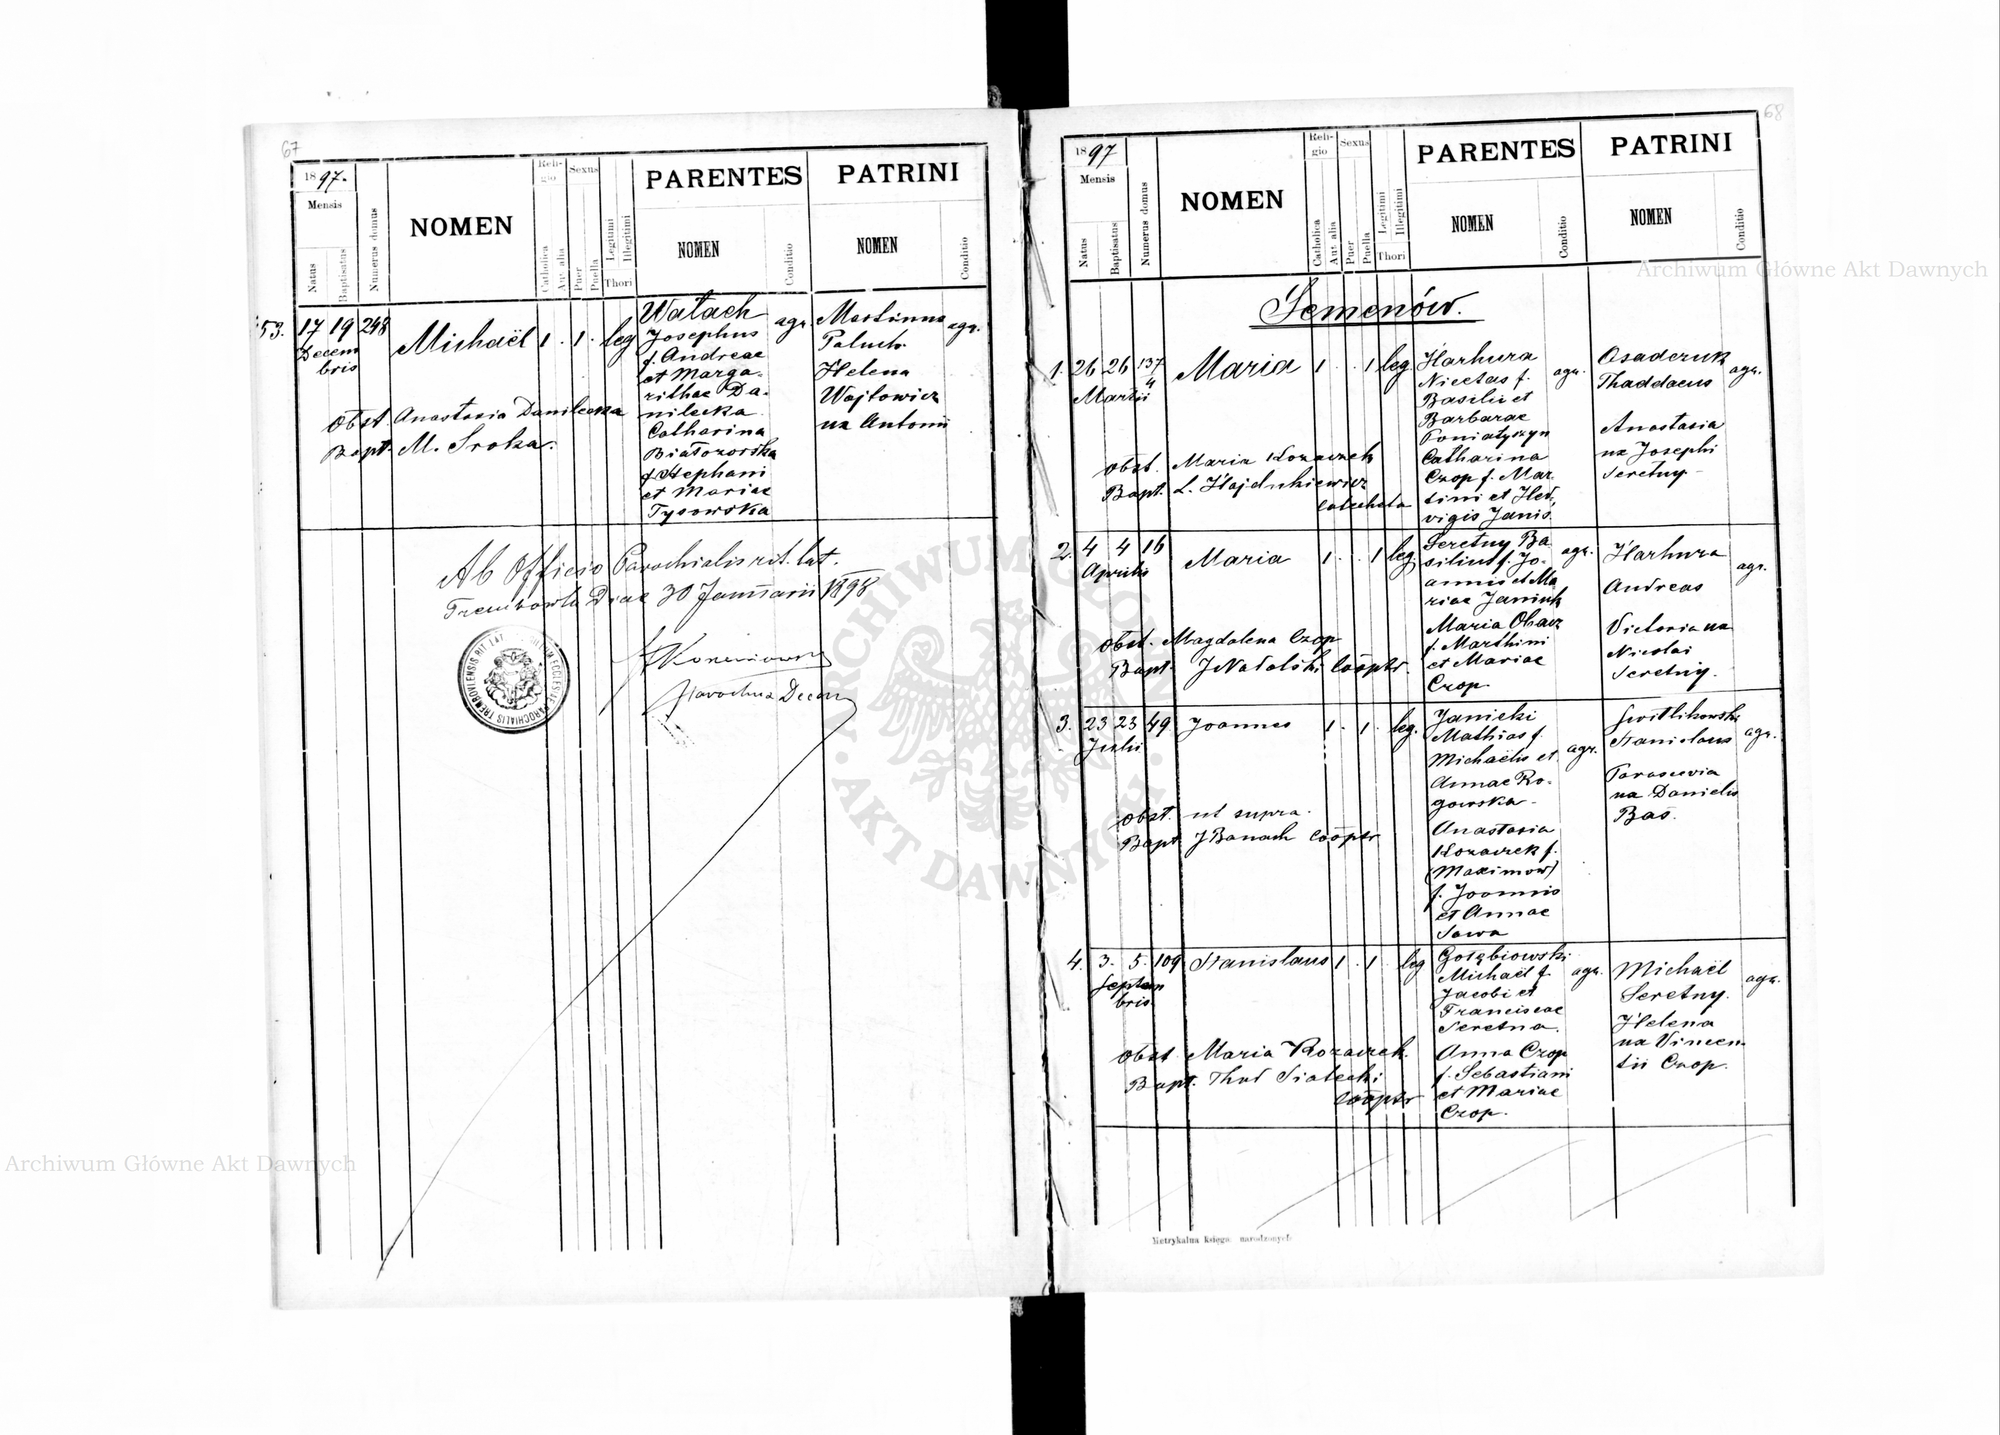 67
1897.
Mensis
Natus
Baptisatus
Numerus domus
NOMEN
Religio
Catholica
Aut alia
Sexus
Puer
Puella
Legitimi
Illegitimi
Thori
PARENTES
NOMEN
Conditio
PATRINI
NOMEN
Conditio
53. 17 19 248 Michaël 1 . 1 . leg
Decem
bris
Watach
Josephus
f. Andreae
et Marga-
rithae Da-
nilecka
Catharina
Białozorska
f. Stephani
et Mariae
Tysowska
agr.
Martinus
Paluch
Helena
Wojtowicz
ux Antonii
agr.
Obst. Anastasia Danilecka
Bapt. M. Sroka.
Ab Officio Parochialis rit. lat.
Trembowla Diae 30 Januarii 1898
Parochus Decan
68
1897
Mensis
Natus
Baptisatus
Numerus domus
NOMEN
Religio
Catholica
Aut alia
Sexus
Puer
Puella
Legitimi
Illegitimi
Thori
PARENTES
NOMEN
Conditio
PATRINI
NOMEN
Conditio
Semenów.
1. 26 26 137 Maria 1 . . 1 leg.
4
Martii
Harhura
Nicetas f.
Basilii et
Barbarae
Poniatyszyn
Catharina
Czop f. Mar-
tini et Hed-
vigis Janis.
agr.
Osadczuk
Thaddaeus
Anastasia
ux Josephi
Seretny
agr.
Obst. Maria Kozaczek
Bapt. L. Hajdukiewicz
Catecheta
2. 4 4 16 Maria 1 . . 1 leg
Aprilis
Seretny Ba
silius f. Jo-
annis et Ma
riae Janiuk
Maria
f. Marthini
et Mariae
Czop
agr.
Harhura
Andreas
Victoria ux
Nicolai
Seretny.
agr.
Obst. Magdalena Czop
Bapt. J Nadolski Cooptr.
3. 23 23 49 Joannes 1 . 1 . leg.
Julii
Janicki
Mathias f.
Michaëlis et
Annae Ro-
gowska -
Anastasia
Kozaczek f.
(Maximow)
f. Joannis
et Annae
Sowa
agr.
Switlikowski
Stanislaus
Parascevia
ux Danielis
Bas.
agr.
Obst. ut supra.
Bapt. J Banach Cooptr
4. 3. 5. 109 Stanislaus 1 . 1 . leg
Septem
bris.
Gołębiowski
Michaël f.
Jacobi et
Franciscae
Seretna.
Anna Czop
f. Sebastiani
et Mariae
Czop.
agr.
Michaël
Seretny.
Helena
ux Vincen
tii Czop.
agr.
Obst Maria Kozaczek.
Bapt. Thad Sialecki
Cooptr
Metrykalna księga narodzonych
Archiwum Główne Akt Dawnych
Archiwum Główne Akt Dawnych
ARCHIWUM GŁÓWNE
AKT DAWNYCH